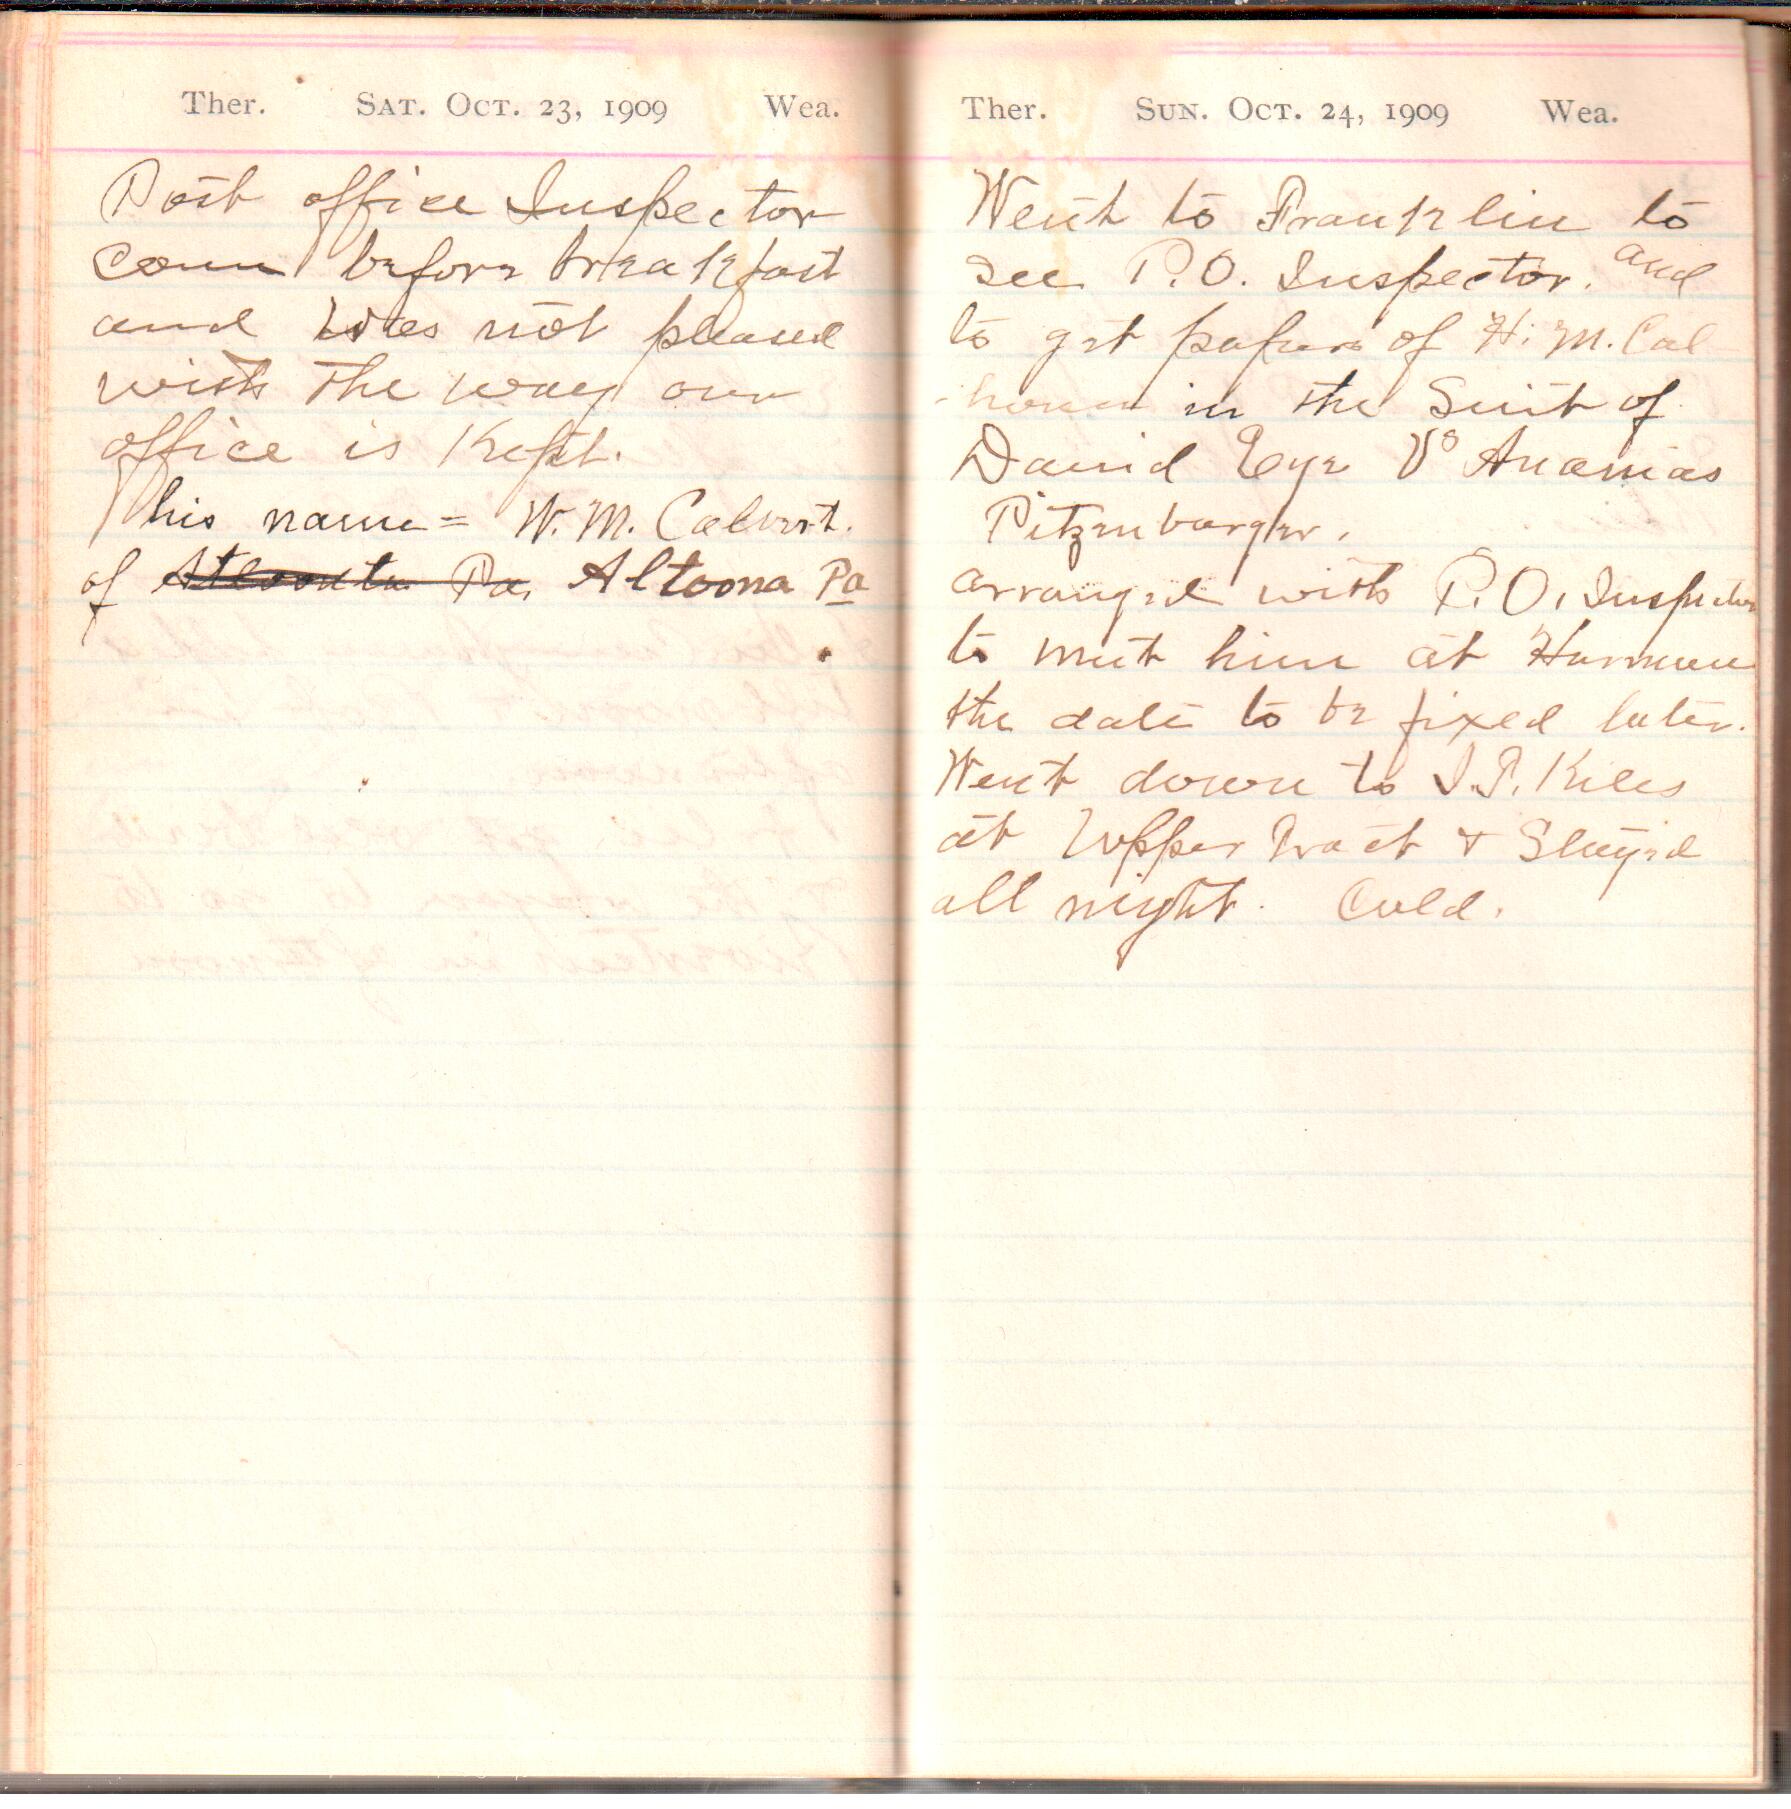 Ther. SAT. OCT. 23, 1909 Wea.
Post office Inspector
come before breakfast
and was not pleased
with the way our
office is Kept.
his name = W. M. Calvert.
of Pa. Altoona Pa
Ther. SUN. OCT. 24, 1909 Wea.
Went to Franklin to
see P.O. Inspector. and
to get papers of H. M. Cal
-houn in the Suit of
David Eye Vs Ananias
Pitzenbarger.
arranged with P.O. Inspector
to meet him at Harman
the date to be fixed later.
Went down to Kiles
at Upper Tract & Stayed
all night. Cold.